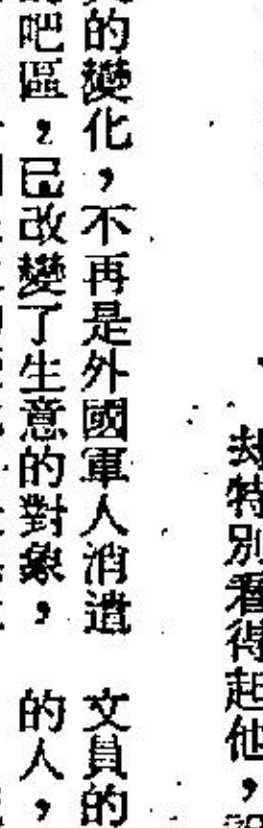 却特別看得起他，
的變化，不再是外國軍人消遣
吧區，已改變了生意的對象，
文員的
的人，